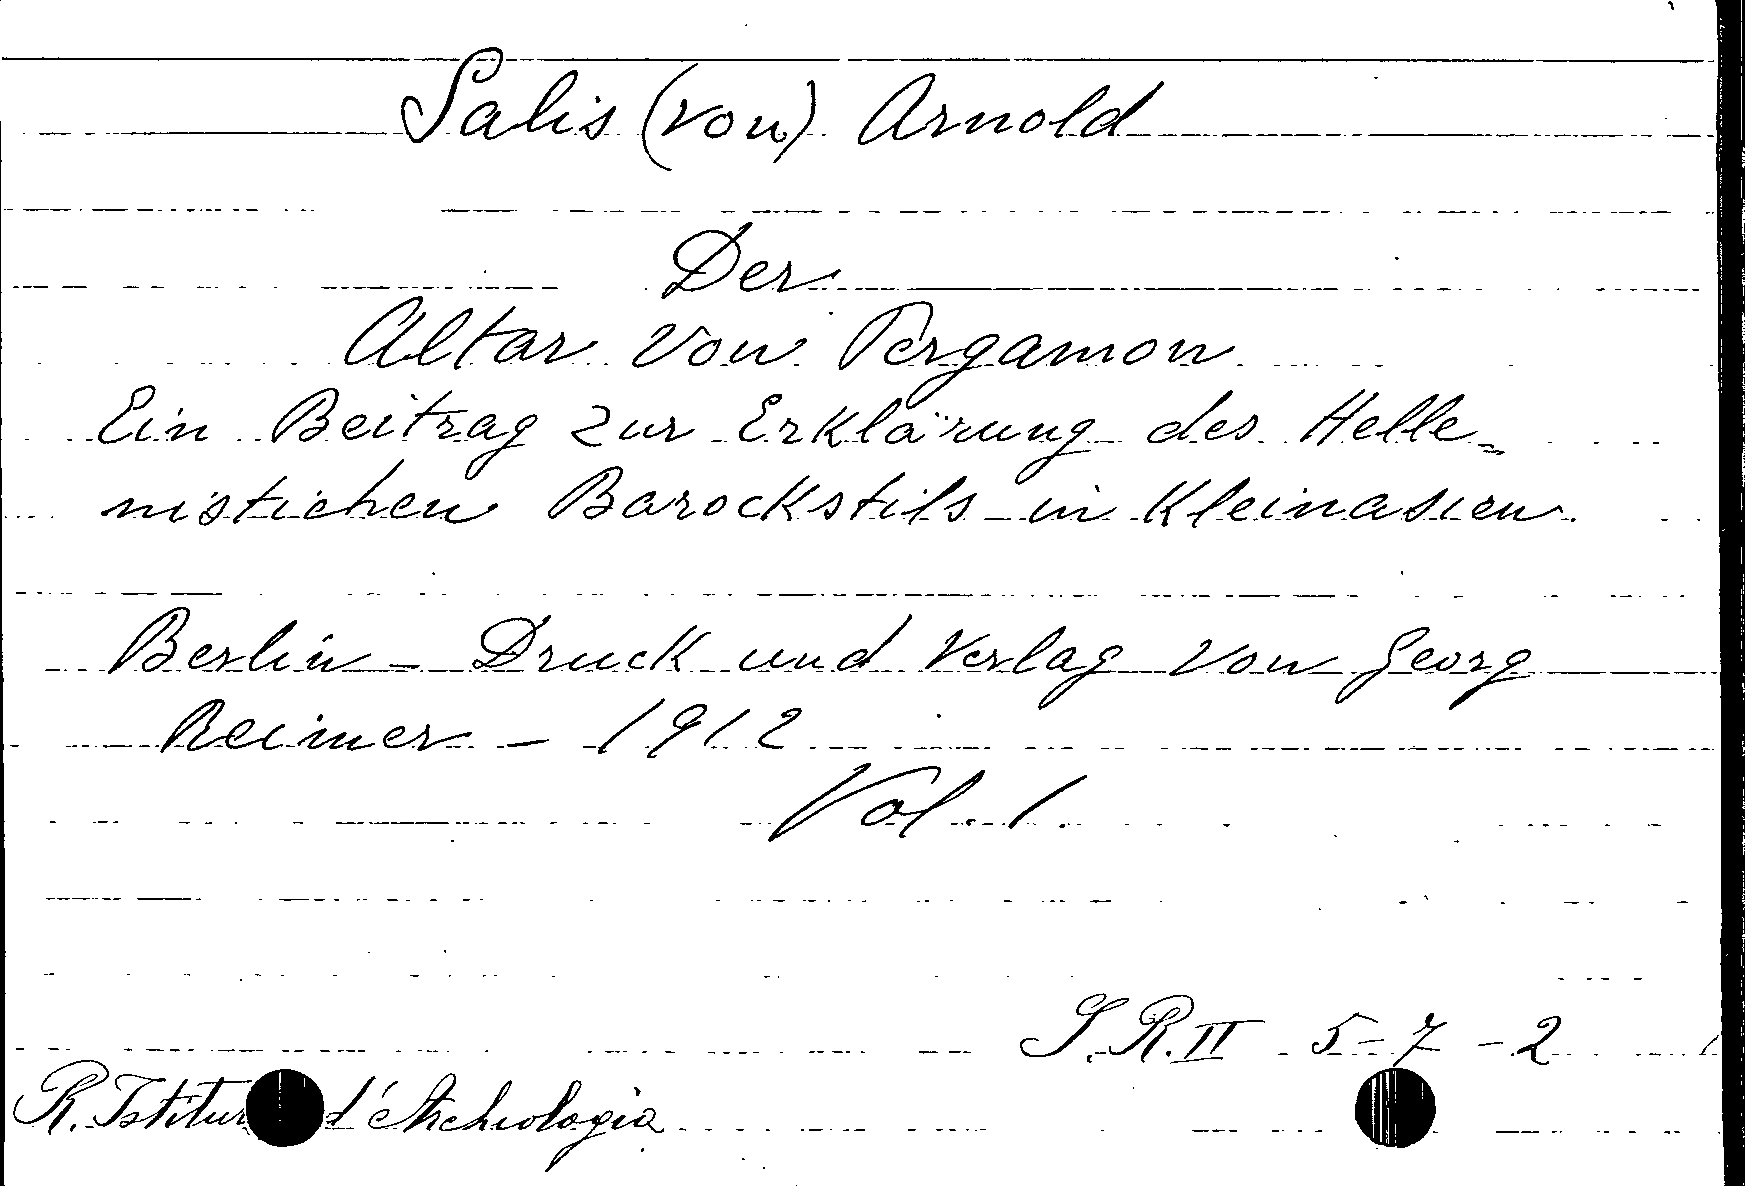 Salis (von) Arnold
Der
Altar von Pergamon
Ein Beitrag zur Erklärung des Helle=
nistichen Barockstils in Kleinasien.
Berlin - Druck und Verlag von Georg
Reimer - 1912
Vol. 1.
S. R. II 5-7-2
R. d'Archeologia